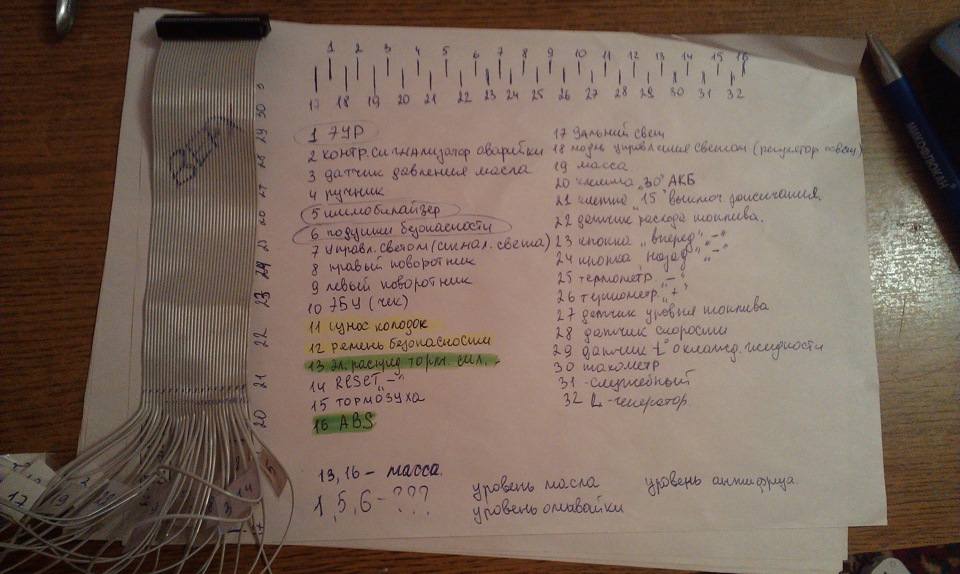 1 2 3 4 5 6 7 8 9 10 11 12 13 14 15 16
17 18 19 20 21 22 23 24 25 26 27 28 29 30 31 32
1 ЭУР
2 контр. сигнализатор аварийки
3 датчик давления масла
4 ручник
5 иммобилайзер
6 подушки безопасности
7 Управл. светом (сигнал. света)
8 правый поворотник
9 левый поворотник
10 ЭБУ (чек)
11 износ колодок
12 ремень безопасности
13 эл. распред торм. сил.
14 RESET „-"
15 тормозуха
16 ABS
17 Дальний свет
18 подм управления светом (регулятор
19 масса
20 клемма „30" АКБ
21 клемма „15" выключ зажигания
22 датчик расхода топлива.
23 кнопка „вперед" „-"
24 кнопка „назад" „-"
25 термометр „-"
26 термометр „+"
27 датчик уровня топлива
28 датчик скорости
29 датчик t° охлажд. жидкости
30 тахометр
31 -служебный
32 L -генератор
13, 16 - масса.
1, 5, 6 - ???
уровень масла
уровень омывайки
уровень антифриза.
30 29 28 27 26 25 24 23 22 21 20
17 19 14 5
МИКРОФЛЮКАН